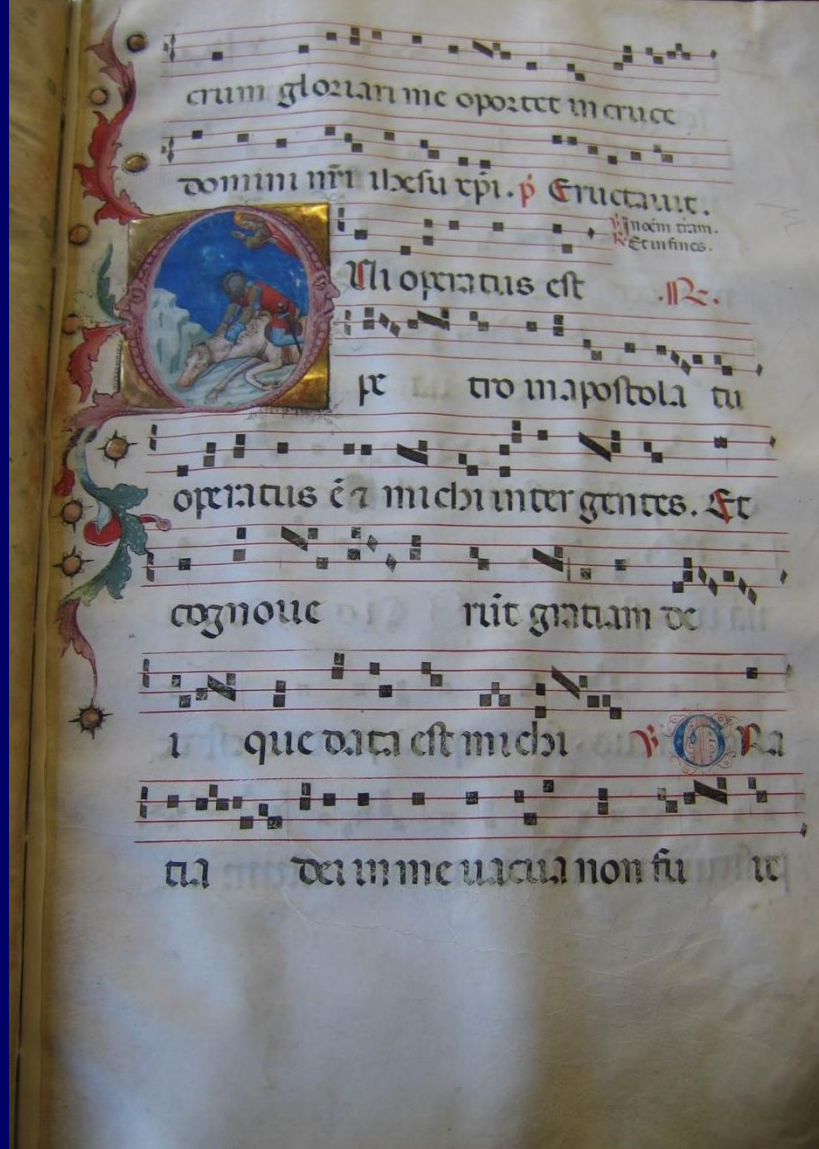 crum gloriari me oportet in cruce
domini nr̄i ih̄esu xp̄i. p̄ Eructauit.
℣ In oēm t̄ram.
℟ Et in fines.
Qui operatus est .℟.
pe tro in apostola tu
operatus ē ⁊ michi inter gentes. Et
cognoue rūt gratiam de
i que data est michi ℣ Gra
tia dei in me uacua non fu it